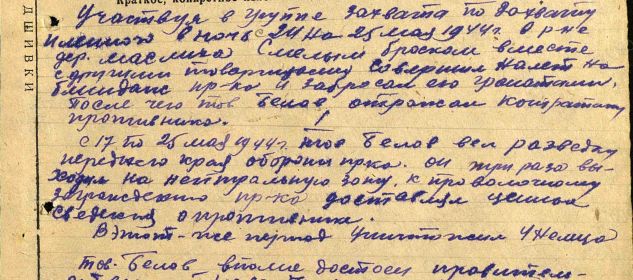 Краткое, конкретное
ДШИВКИ
Участвуя в группе захвата по захвату
пленного в ночь с 24 на 25 мая 1944 г. в р-не
дер. Маслича Смелым броском вместе
с другими товарищами совершил налет на
блиндаж пр-ка и забросал его гранатами.
После чего тов Белов, отражал контратаку
противника.
С 17 по 25 мая 1944 г. тов Белов вел разведку
переднего края обороны пр-ка. он три раза вы-
ходил на нейтральную зону, к проволочному
заграждению пр-ка доставлял ценные
сведения о противнике.
В этот-же период уничтожил 1 немца
тов. Белов вполне достоен правитель-